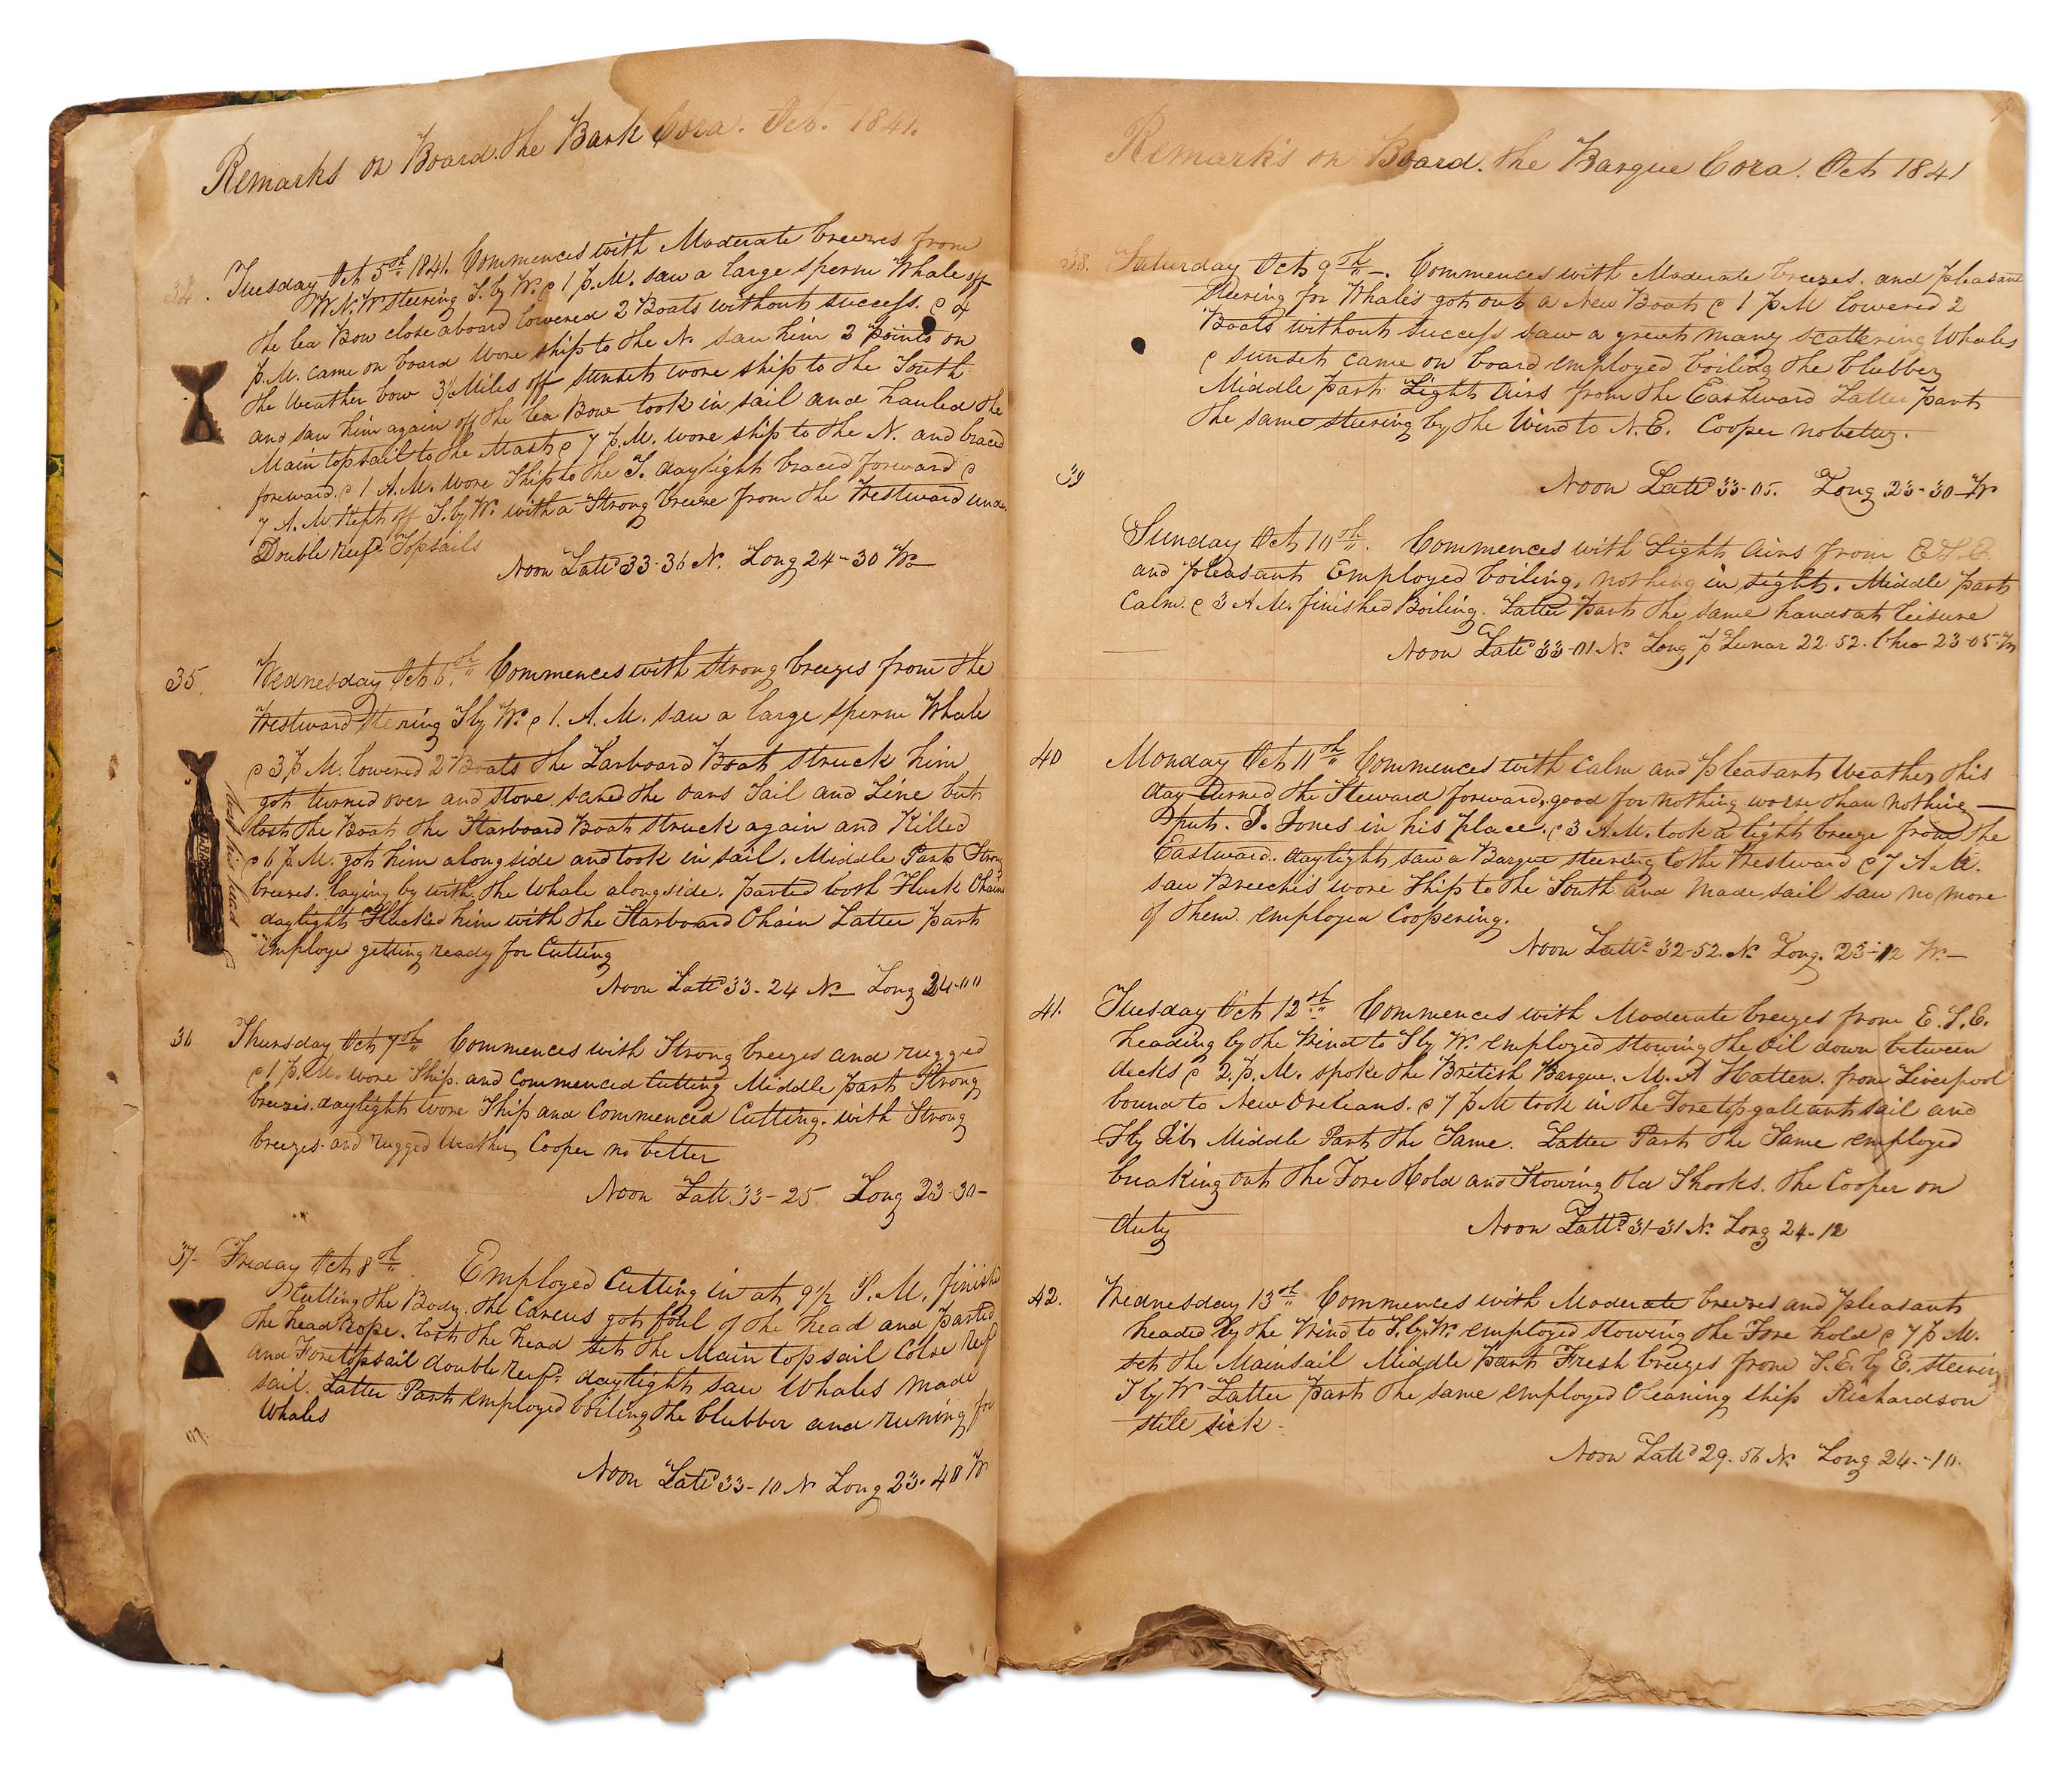 Remarks on Board the Bark Cora. Oct. 1841.
34. Tuesday Oct 5th 1841. Commences with Moderate breezes from
W.N.W steering S. by W. @ 1 P.M. saw a large sperm Whale off
the lea Bow close aboard lowered 2 Boats without success. @ 4
P.M. came on board wore ship to the N. saw him 2 points on
the weather bow 3½ Miles off sunset wore ship to the South
and saw him again off the lea Bow took in sail and hauled the
Main topsail to the Mast @ 7 P.M. wore ship to the N. and braced
foreward. @ 1 A.M. wore Ship to the S. daylight braced forward @
7 A.M. Kept off S. by W. with a Strong breeze from the Westward under
Double Reefd Topsails
Noon Lattd 33-36 N. Long 24-30 W.
35. Wednesday Oct 6th Commences with strong breezes from the
Westward Stering S by W. @ 1. A.M. saw a large sperm Whale
@ 3 P.M. lowered 2 Boats the Larboard Boat struck him
got turned over and stove, saved the oars Sail and Line but
lost the Boat the Starboard Boat struck again and Killed
@ 6 P.M. got him alongside and took in sail. Middle Part Strong
breezes. laying by with the Whale alongside. parted both Fluck Chains
daylight Flucked him with the Starboard Chain Latter part
employed getting ready for Cutting
Noon Lattd 33-24 N. Long 24-00
lost his head
36 Thursday Oct 7th Commences with Strong breezes and rugged
@ 1 P.M. wore Ship. and commenced Cutting Middle part Strong
breezis. daylight wore Ship and Commenced Cutting. with Strong
breezes. and rugged Weather, Cooper no better
Noon Latt 33-25 Long 23-30-
37- Friday Oct 8th Employed Cutting in at 9½ P.M. finishd
Cutting the Body. the Carcus got foul of the head and parted
the head Rope. lost the head set the Main topsail Colse Reef
and Foretopsail double reefd daylight saw Whales made
sail. Latter Part employed boiling the blubber and runing for
Whales
Noon Lattd 33-10 N Long 23-48 W
Remark's on Board. the Barque Cora. Oct 1841
38. Saturday Oct 9th -. Commences with Moderate breezes. and pleasant
steering for Whales got out a New Boat @ 1 P.M lowered 2
Boats without success saw a great many scattering Whales
@ sunset came on board employed boiling the blubber
Middle part Light Airs from the Eastward Latter part
the same steering by the Wind to N.E. Cooper no better.
Noon Lattd 33-05. Long 23-30 W
39
Sunday Oct 10th. Commences with Light Airs from E.S.E.
and pleasant Employed boiling, nothing in sight. Middle part
Calm. @ 3 A.M. finished Boiling. Latter part the same hands at leisure
Noon Lattd 33-01 N. Long p Lunar 22.52. Chro 23-05. W
40 Monday Oct 11th Commences with Calm and pleasant Weather this
day turned the Steward forward, good for nothing worse than nothing -
put. J. Jones in his place. @ 3 A.M. took a light breeze from the
Eastward. daylight saw a Barque steering to the Westward @ 7 A.M.
saw Breechis wore Ship to the South and made sail saw no more
of them. employed Coopering.
Noon Lattd 32-52. N. Long. 23-12 W.-
41. Tuesday Oct 12th Commences with Moderate breezes from E.S.E.
heading by the Wind to S by W. employed stowing the Oil down between
decks @ 2. P.M. spoke the British Barque. M. A Hatten. from Liverpool
bound to New Orleans. @ 7 P.M took in the Fore topgallant sail and
Fly Jib Middle Part the Same. Latter Part the Same employed
breaking out the Fore Hold and Stowing Old Shooks. the Cooper on
duty Noon Lattd 31-31 N. Long 24-12
42. Wednesday 13th Commences with Moderate breezes and pleasant
headed by the Wind to S. by W. employed stowing the Fore hold @ 7 P.M.
set the Mainsail Middle part Fresh breezes from S.E. by E. steering
S by W Latter part the same employed Cleaning ship Richardson
stile sick-
Noon Lattd 29.56 N. Long 24.-10.